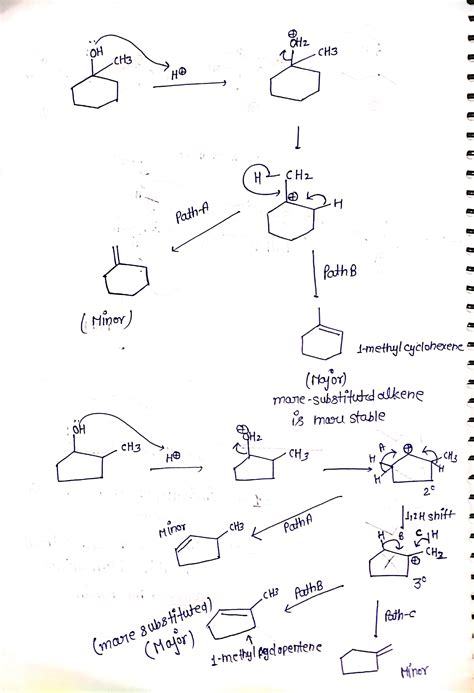 OH
CH3
H⊕
⊕
OH2
CH3
H - CH2
⊕
H
Path-A
(Minor)
Path B
1-methyl cyclohexene
(Major)
more-substituted alkene
is more stable
OH
CH3
H⊕
⊕
OH2
CH3
A
⊕
H
H
H
CH3
2°
1,2 H shift
Path A
Minor
CH3
H B C H
CH2
⊕
3°
Path B
CH3
(more substituted)
(Major)
1-methyl cyclopentene
Path-C
Minor